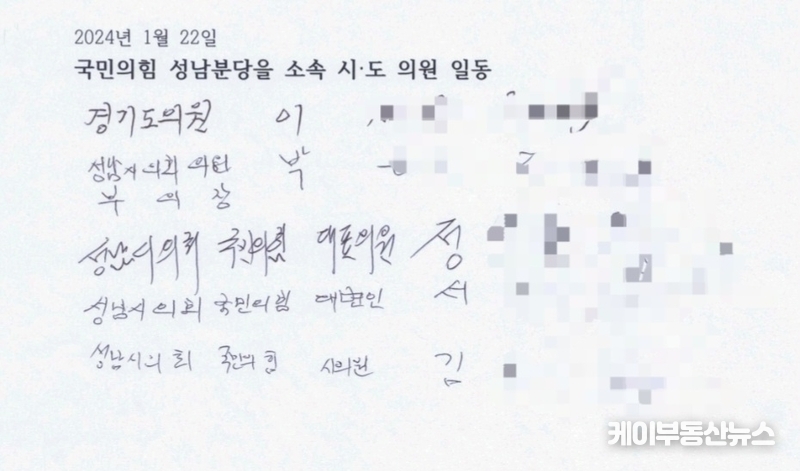 2024년 1월 22일
국민의힘 성남분당을 소속 시·도 의원 일동
경기도의원 이
성남시의회 의원 박
부의장
성남시의회 국민의힘 대표의원 정
성남시의회 국민의힘 대변인 서
성남시의회 국민의힘 시의원 김
케이부동산뉴스